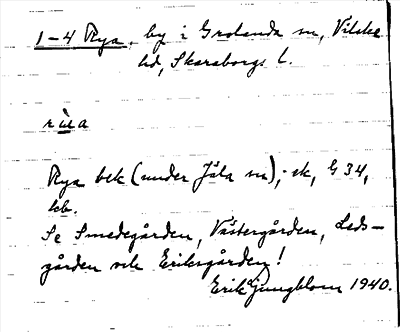 1-4 Rya, by i Grolanda sn, Vilske
hd, Skaraborgs l.
Rya bek (under Jäla sn), ek, G 34,
kb.
Se Smedegården, Västergården, Leds-
gården och Eriksgården!
Erik Ljungblom 1940.